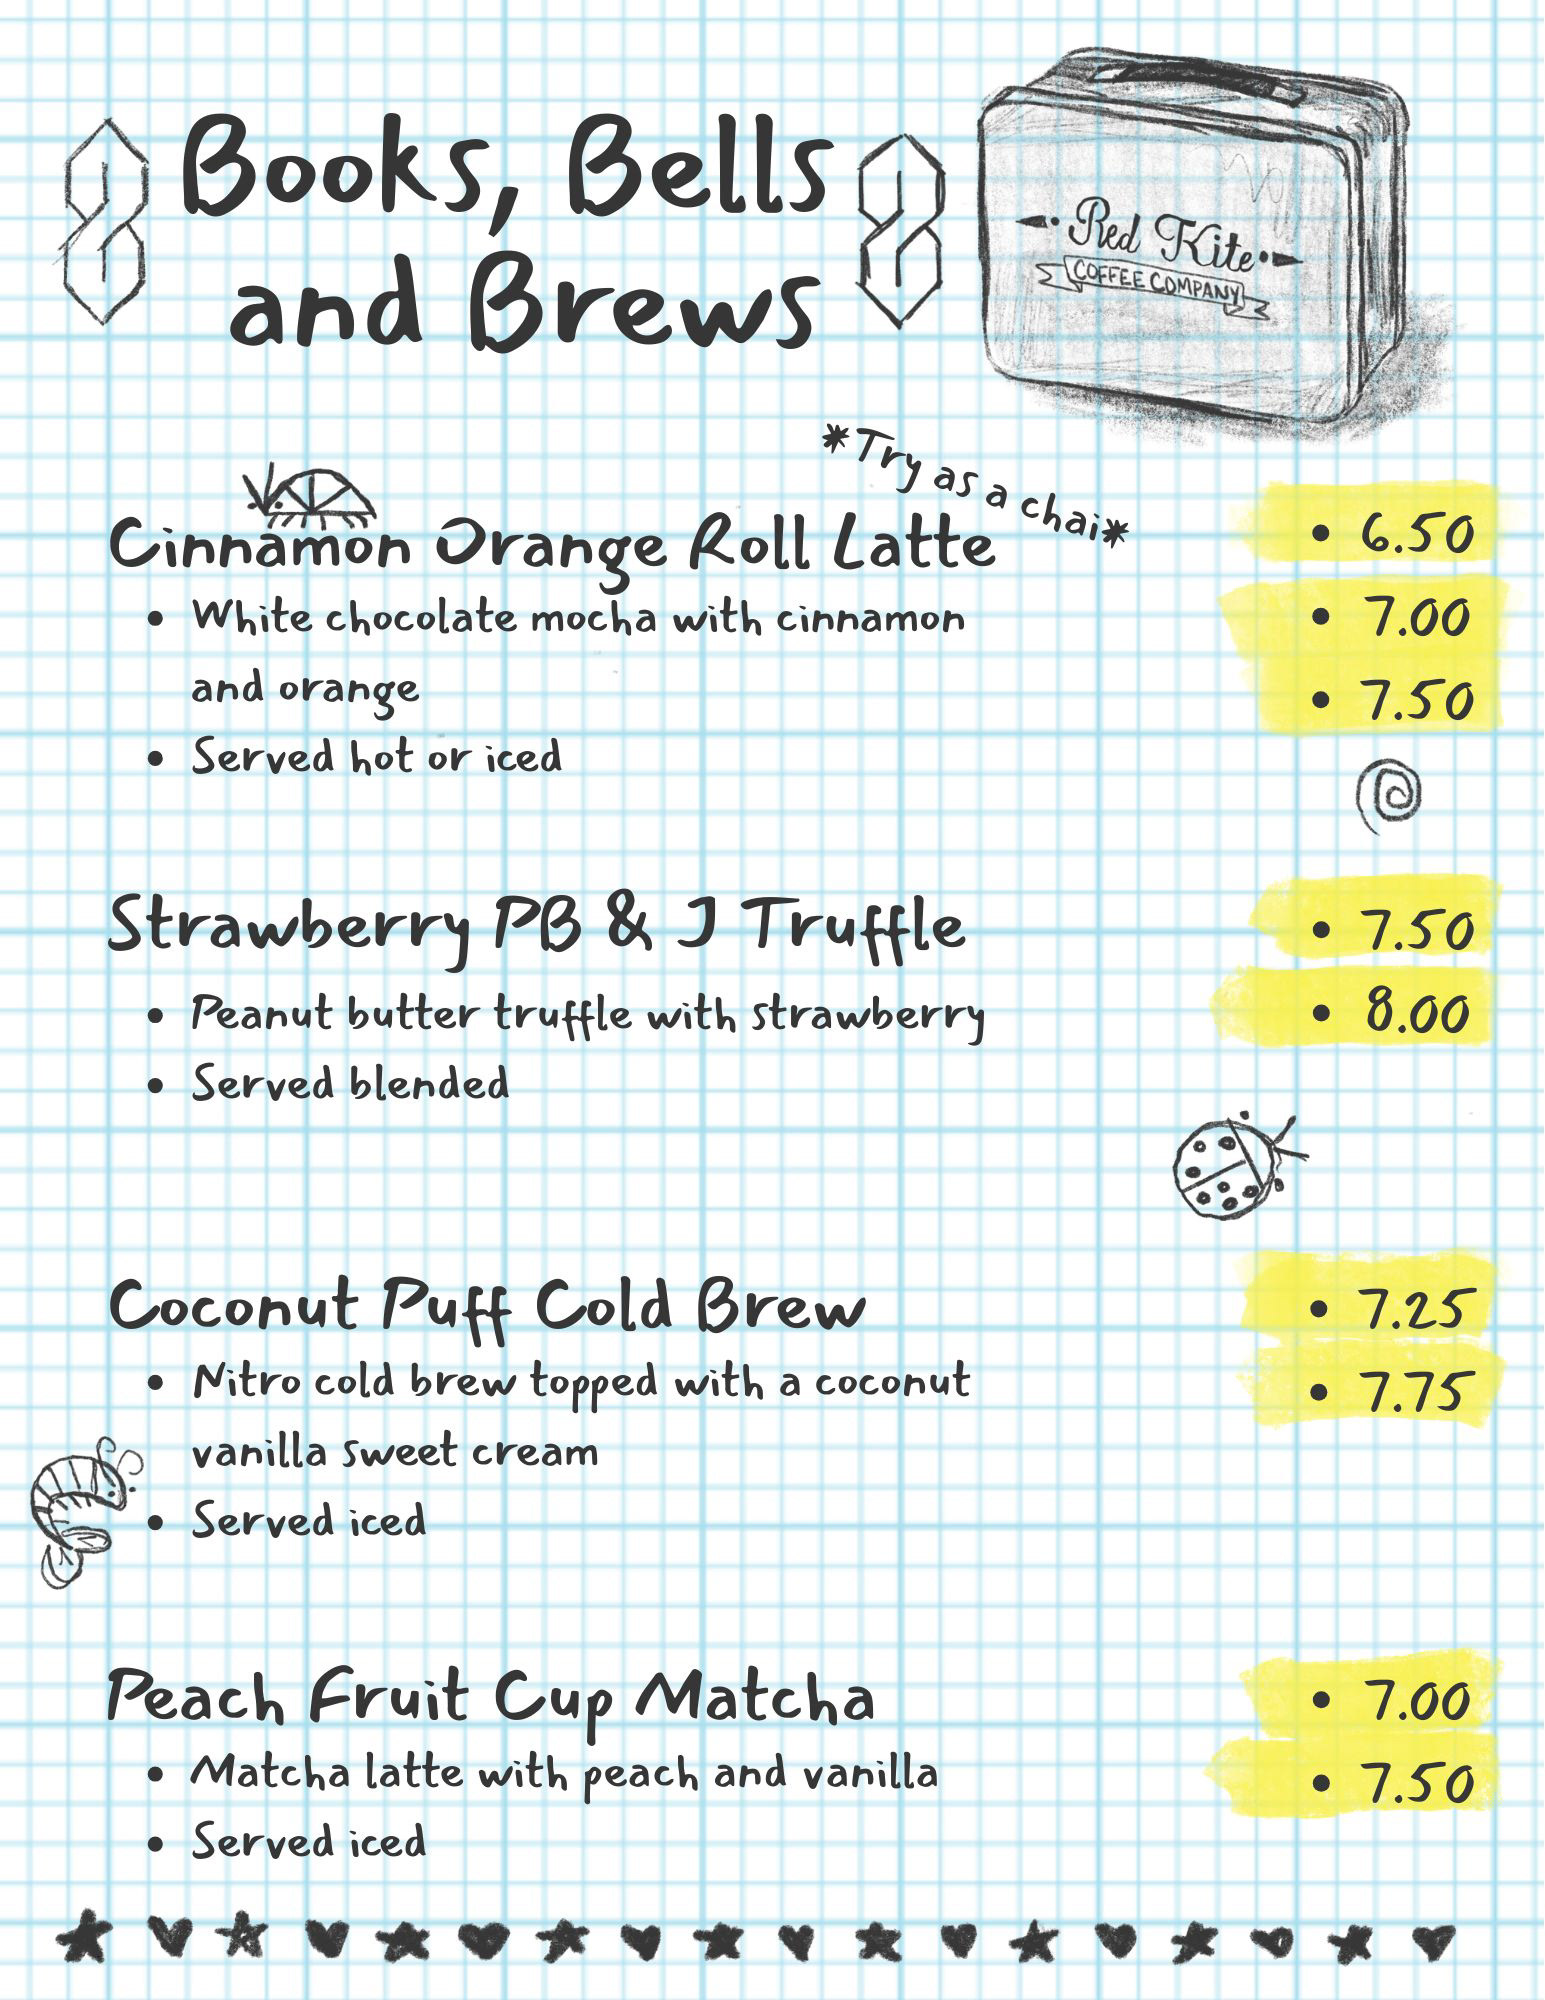 Books, Bells
and Brews
Red Kite
COFFEE COMPANY
*Try as a chai*
Cinnamon Orange Roll Latte
• White chocolate mocha with cinnamon
and orange
• Served hot or iced
• 6.50
• 7.00
• 7.50
Strawberry PB & J Truffle
• Peanut butter truffle with strawberry
• Served blended
• 7.50
• 8.00
Coconut Puff Cold Brew
• Nitro cold brew topped with a coconut
vanilla sweet cream
• Served iced
• 7.25
• 7.75
Peach Fruit Cup Matcha
• Matcha latte with peach and vanilla
• Served iced
• 7.00
• 7.50